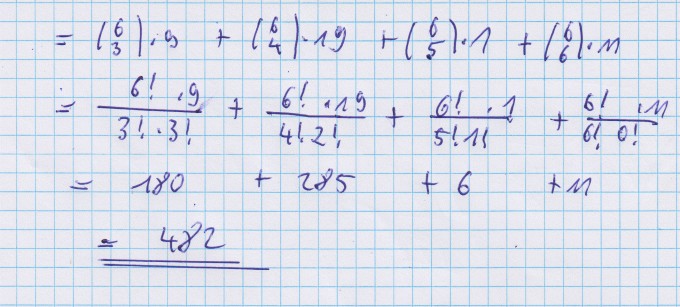 = (6 3) · 9 + (6 4) · 19 + (6 5) · 1 + (6 6) · 11
= 6! · 9 / 3! · 3! + 6! · 19 / 4! 2! + 6! · 1 / 5! 1! + 6! · 11 / 6! 0!
= 180 + 285 + 6 + 11
= 482